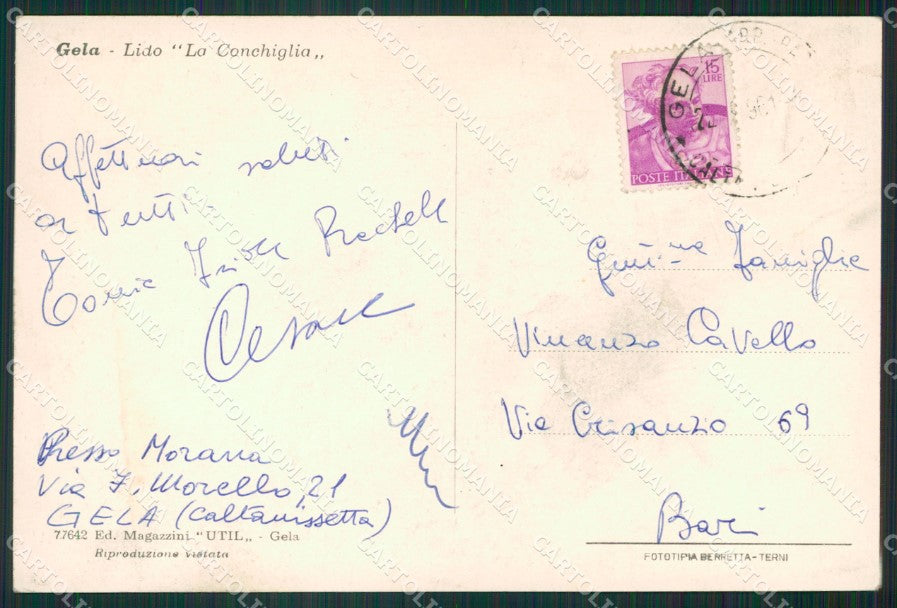 Gela - Lido "La Conchiglia„
15
LIRE
POSTE ITALIANE
GELA
Affettuosi saluti
a tutti
Tonia Isa Rachele
Cesare
Gent.ma Famiglia
Vincenzo Cavello
Via Crisanzio 69
Bari
Presso Morana
Via F. Morello, 21
GELA (Caltanissetta)
77642 Ed. Magazzini "UTIL„ - Gela
Riproduzione vietata
FOTOTIPIA BERRETTA - TERNI
CARTOLINOMANIA